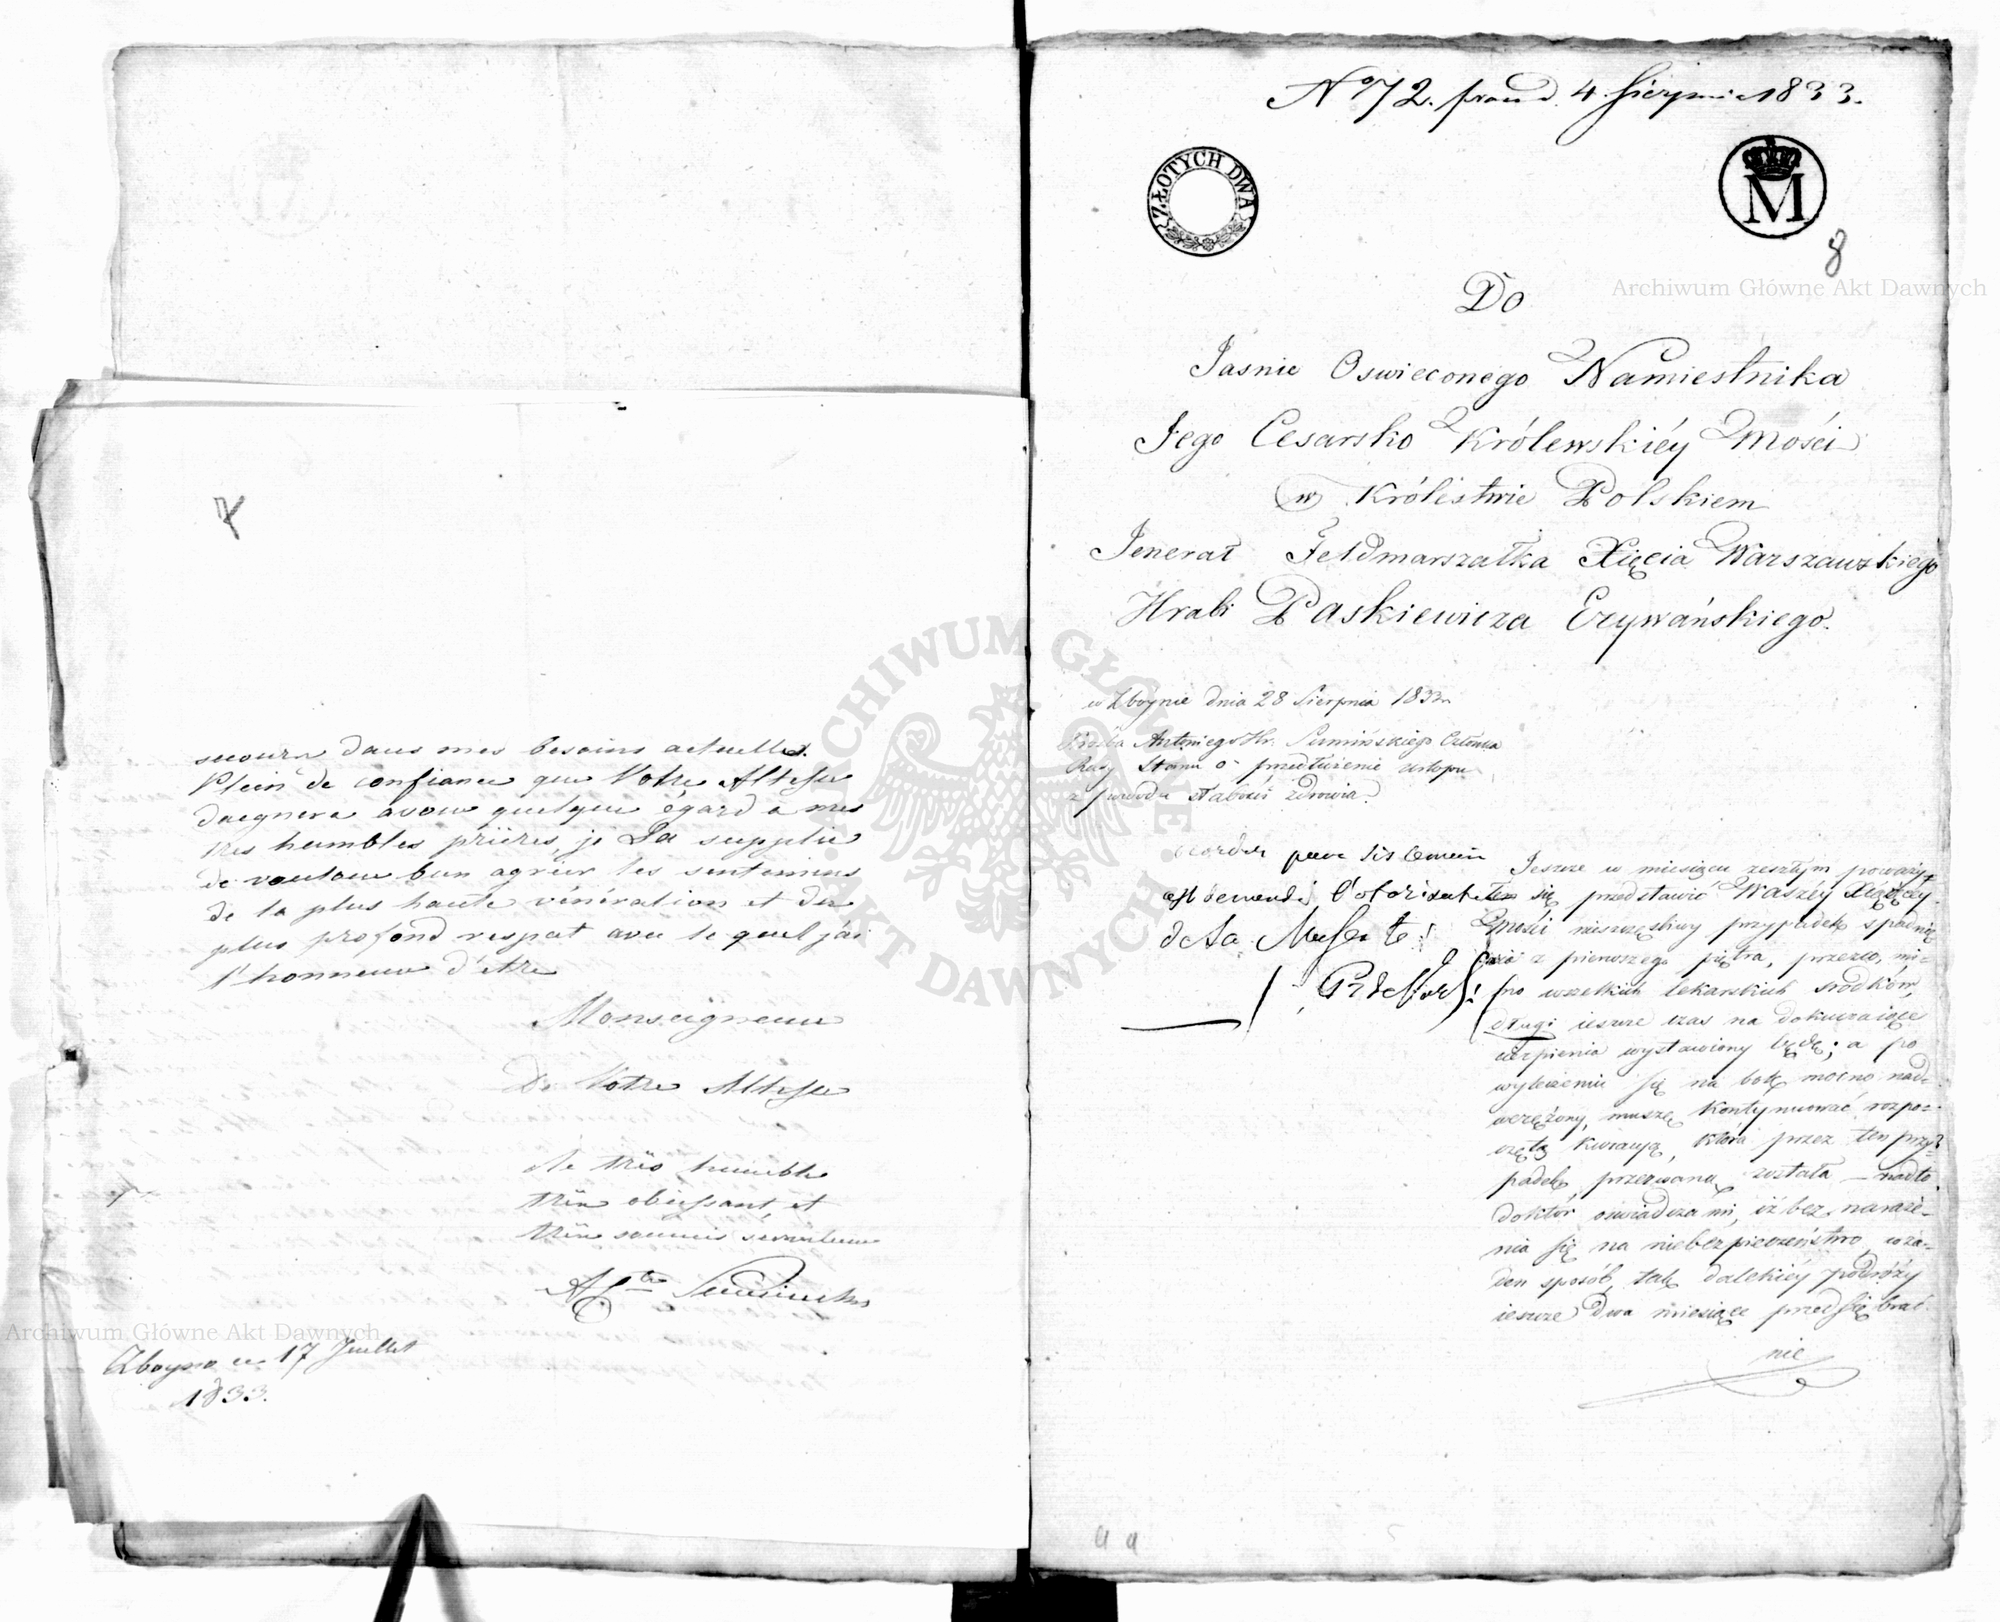 7
secours dans mes besoins actuelles.
Plein de confiance que Votre Altesse
daignera avoir quelque égard à mes
très humbles prières, je La supplie
de vouloir bien agréer les sentimens
de la plus haute vénération et du
plus profond respect avec lequel j'ai
l'honneur d'être
Monseigneur
De Votre Altesse
le très humble
très obéissant, et
très soumis serviteur
Zboyno ce 17 Juillet
1833.
No 72. 4 Sierpnia 1833.
ZŁOTYCH DWA
M
8
Do
Jasnie Oswieconego Namiestnika
Jego Cesarsko Królewskiéy Mości
w Królestwie Polskiem
Jenerał Feldmarszałka Xięcia Warszawskiego
Hrabi Paskiewicza Erywańskiego.
w Zboynie dnia 28 Sierpnia 1833r
Prośba Antoniego Hr. Sumińskiego Członka
Rady Stanu o przedłużenie urlopu
z powodu słabości zdrowia.
Jeszcze w miesiącu zeszłym poważy=
łem się przedstawić Waszéy Xiążęcéy
Mości nieszczęśliwy przypadek spadnię
cia z pierwszego piętra, przezco, mi=
mo wszelkich lekarskich srodków,
długi ieszcze czas na dokuczaiące
cierpienia wystawiony będę; a po
wyleczeniu się na bokę mocno nad=
werężony, muszę kontynuować rozpo=
czętą kuracyą, która przez ten przy=
padek przerwaną została — nadto
doktór oswiadcza mi, iż bez naraże=
nia się na niebezpieczeństwo, w ża=
den sposób, tak dalekiéy podróży
ieszcze dwa miesiące przedsiębrać
nie
Archiwum Główne Akt Dawnych
Archiwum Główne Akt Dawnych
ARCHIWUM GŁÓWNE
AKT DAWNYCH